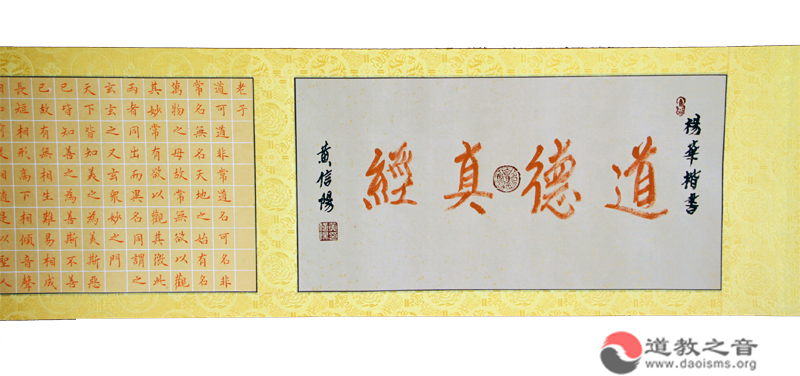 楊華楷書
道德真經
黄信陽
老子
道可道非常道名可名非
常名無名天地之始有名
萬物之母故常無欲以觀
其妙常有欲以觀其徼此
兩者同出而異名同謂之
玄玄之又玄衆妙之門
天下皆知美之為美斯惡
已皆知善之為善斯不善
已故有無相生難易相成
長短相形高下相傾音聲
是以聖人
道教之音
www.daoisms.org